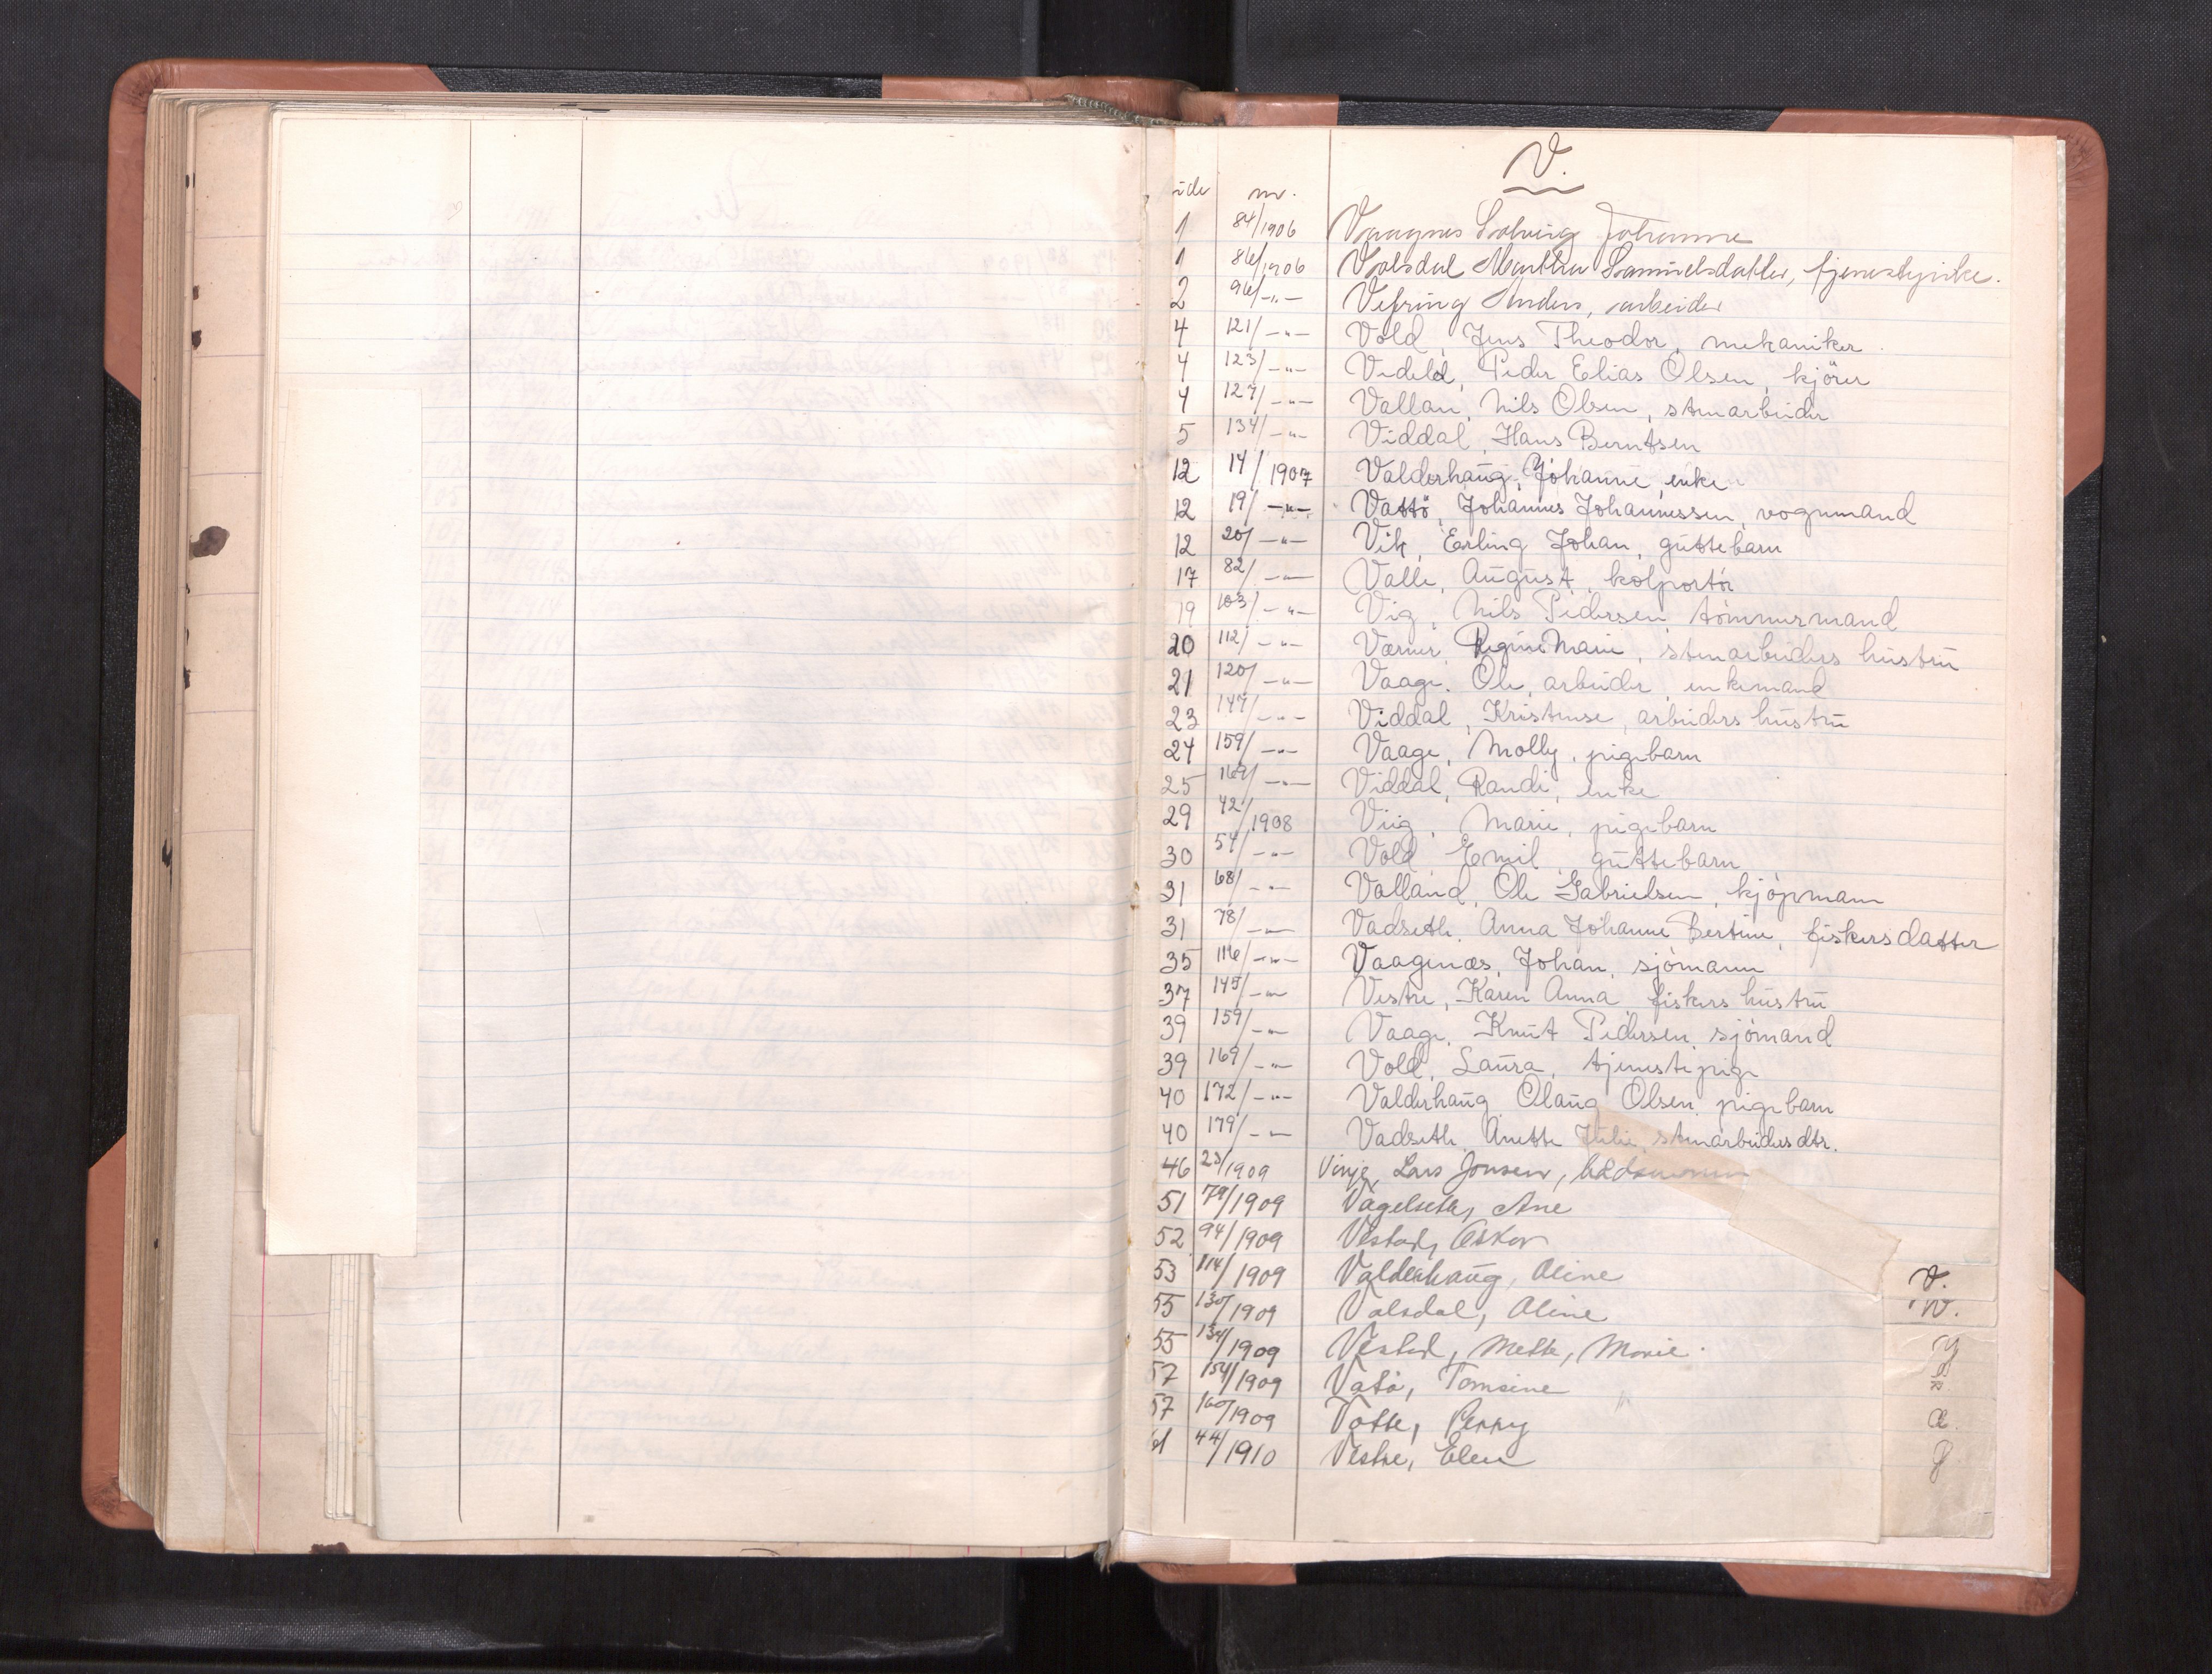 V.
ide nr.
1 84/1906 Vaagnes Solveig Johanne
1 86/1906 Valsdal Martha Samuelsdatter, tjenestepike.
2 96/-„- Vefring Anders, arbeider
4 121/-„- Vold, Jens Theodor, mekaniker
4 123/-„- Videld, Peder Elias Olsen, kjörer
4 127/-„- Vallan, Nils Olsen, stenarbeider
5 134/-„- Viddal, Hans Berntsen
12 14/1907 Valderhaug, Johanne, enke
12 19/-„- Vattö, Johannes Johannessen, vognmand
12 20/-„- Vik, Erling Johan, guttebarn
17 82/-„- Valle, August, kolportör
19 103/-„- Vig, Nils Pedersen, tömmermand
20 112/-„- Værner, Regine Marie, stenarbeiders hustru
21 120/-„- Vaage, Ole, arbeider, enkemand
23 147/-„- Viddal, Kristense, arbeiders hustru
24 159/-„- Vaage, Molly, pigebarn
25 169/-„- Viddal, Randi, enke
29 42/1908 Viig, Marie, pigebarn
30 54/-„- Vold Emil, guttebarn
31 68/-„- Valland, Ole Gabrielsen, kjöpmann
31 78/-„- Vadseth, Anna Johanne Bertine, fiskersdatter
35 116/-„- Vaagenæs, Johan, sjömann
37 145/-„- Vestre, Karen Anna, fiskers hustru
39 159/-„- Vaage, Knut Pedersen, sjömand
39 169/-„- Vold, Laura, tjenestepige
40 172/-„- Valderhaug Olaug Olsen, pigebarn
40 179/-„- Vadseth, Anette Julie, stenarbeidersdtr.
46 23/1909 Vinje, Lars Jonsen, bådsmann
51 79/1909 Vågelseth, Ane
52 94/1909 Vestad, Oskar
53 114/1909 Valderhaug, Oline
55 130/1909 Valsdal, Oline
55 134/1909 Vestad, Mette, Marie.
57 154/1909 Vatö, Tomine
57 160/1909 Votte, Penny
44/1910 Vestre, Elen
V.
W.
Y
Z
Æ
Ø